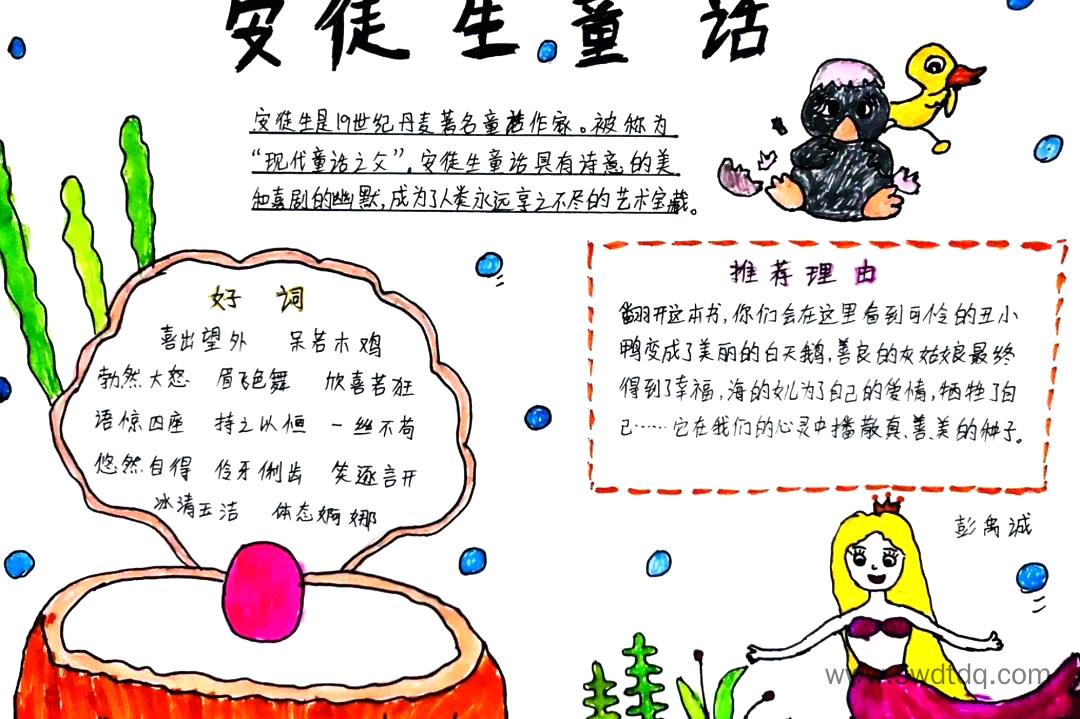 安徒生童话
安徒生是19世纪丹麦著名童话作家。被称为
“现代童话之父”。安徒生童话具有诗意的美
和喜剧的幽默,成为了人类永远享之不尽的艺术宝藏。
好词
喜出望外 呆若木鸡
勃然大怒 眉飞色舞 欣喜若狂
语惊四座 持之以恒 一丝不苟
悠然自得 伶牙俐齿 笑逐言开
冰清玉洁 体态婀娜
推荐理由
翻开这本书,你们会在这里看到可怜的丑小
鸭变成了美丽的白天鹅,善良的灰姑娘最终
得到了幸福,海的女儿为了自己的爱情,牺牲了自
己……它在我们的心灵中播散真、善、美的种子。
彭禹诚
www.swdtdq.com